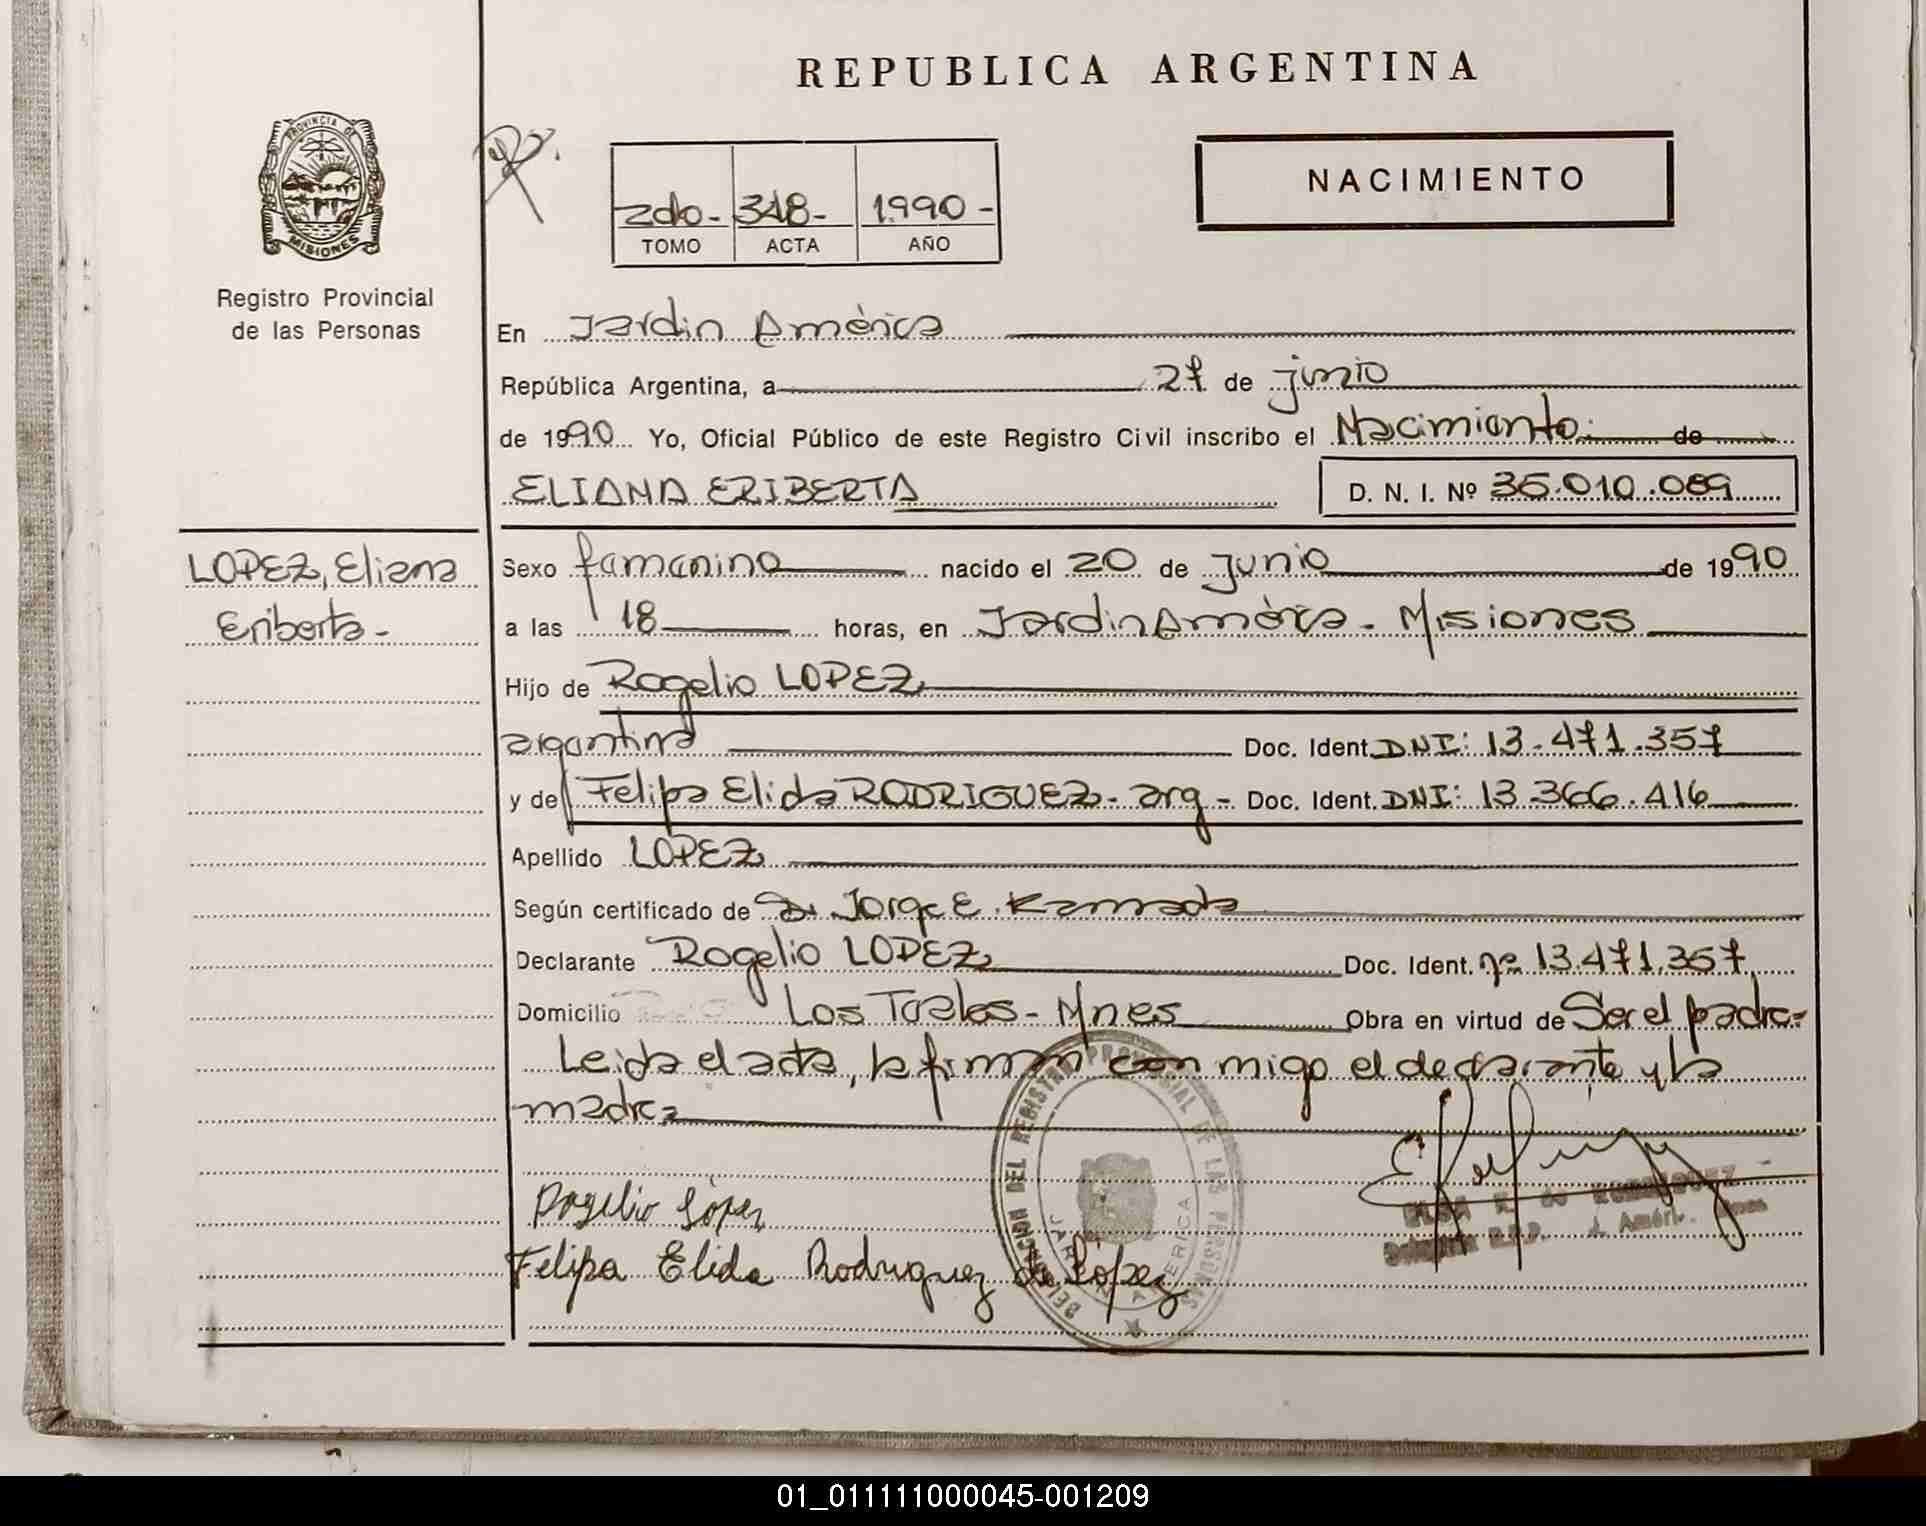 REPUBLICA ARGENTINA
PROVINCIA DE
MISIONES
Registro Provincial
de las Personas
2do- 318- 1990-
TOMO ACTA AÑO
NACIMIENTO
En Jardin América
República Argentina, a 27 de junio
de 1990 Yo, Oficial Público de este Registro Civil inscribo el Nacimiento de
ELIANA ERIBERTA D. N. I. Nº 35.010.089
LOPEZ, Eliana
Eriberta-
Sexo femenino nacido el 20 de junio de 1990
a las 18 horas, en Jardin América - Misiones
Hijo de Rogelio LOPEZ
argentina Doc. Ident. DNI: 13.471.357
y de Felipa Elida RODRIGUEZ - arg - Doc. Ident. DNI: 13.366.416
Apellido LOPEZ
Según certificado de Dr Jorge E. Kamada
Declarante Rogelio LOPEZ Doc. Ident. nº 13.471.357
Domicilio Los Teales - Mnes Obra en virtud de Ser el padre-
Leida el acta, la firman con migo el declarante y la
madre
Rogelio López
Felipa Elida Rodriguez de López
DELEGACION DEL REGISTRO PROVINCIAL DE LAS PERSONAS
JARDIN AMERICA
ELSA
R.P.P. J. Améri
01_011111000045-001209